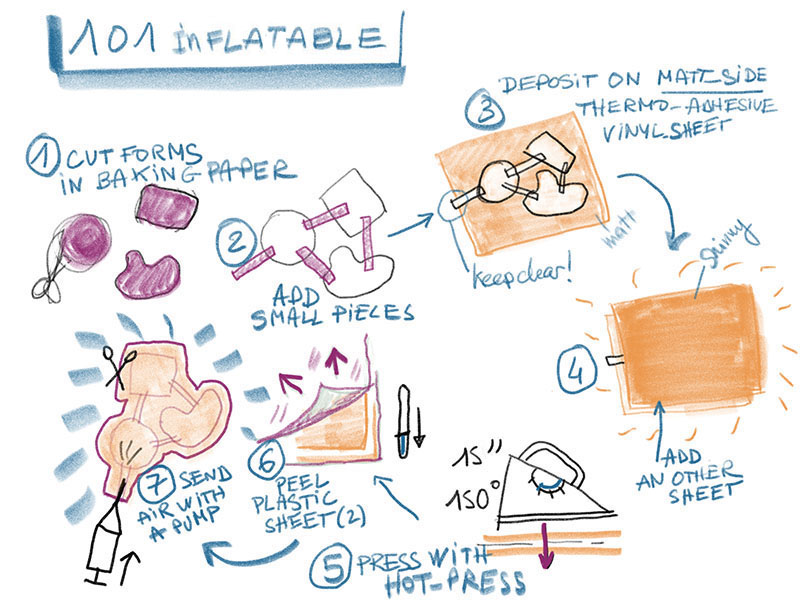 101 INFLATABLE
1 CUT FORMS
IN BAKING PAPER
2
ADD
SMALL PIECES
3 DEPOSIT ON MATT-SIDE
THERMO-ADHESIVE
VINYL SHEET
keep clear!
matt
shinny
4
ADD
AN OTHER
SHEET
15"
150°
5 PRESS WITH
HOT-PRESS
6
PEEL
PLASTIC
SHEET (2)
7 SEND
AIR WITH
A PUMP